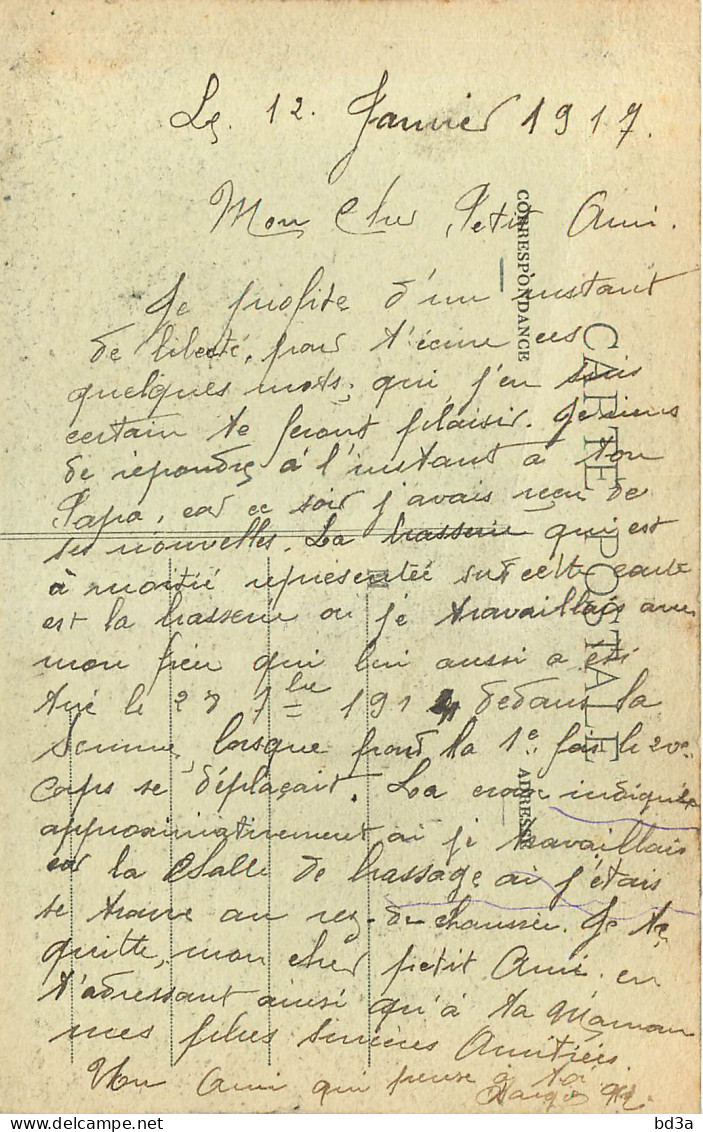 Le. 12. Janvier 1917.
Mon Cher Petit Ami.
Je profite d'un instant
de liberté, pour t'écrire ces
quelques mots, qui j'en suis
certain te feront plaisir. Je viens
de répondre à l'instant à ton
Papa, car ce soir j'avais reçu de
ses nouvelles. La brasserie qui est
à moitié représentée sur cette carte
est la brasserie ou je travaillais avec
mon frère qui lui aussi a été
tué le 27 7bre 1914 dedans la
Somme, lorsque pour la 1e fois le 20e
Corps se déplaçait. La croix indique
approximativement ou je travaillais
car la Salle de brassage ou j'étais
se trouve au rez-de-chaussée. Je te
quitte, mon cher petit Ami en
t'adressant ainsi qu'à ta Maman
mes plus sincères Amitiées.
Ton Ami qui pense à toi
CORRESPONDANCE
CARTE POSTALE
ADRESSE
bd3a